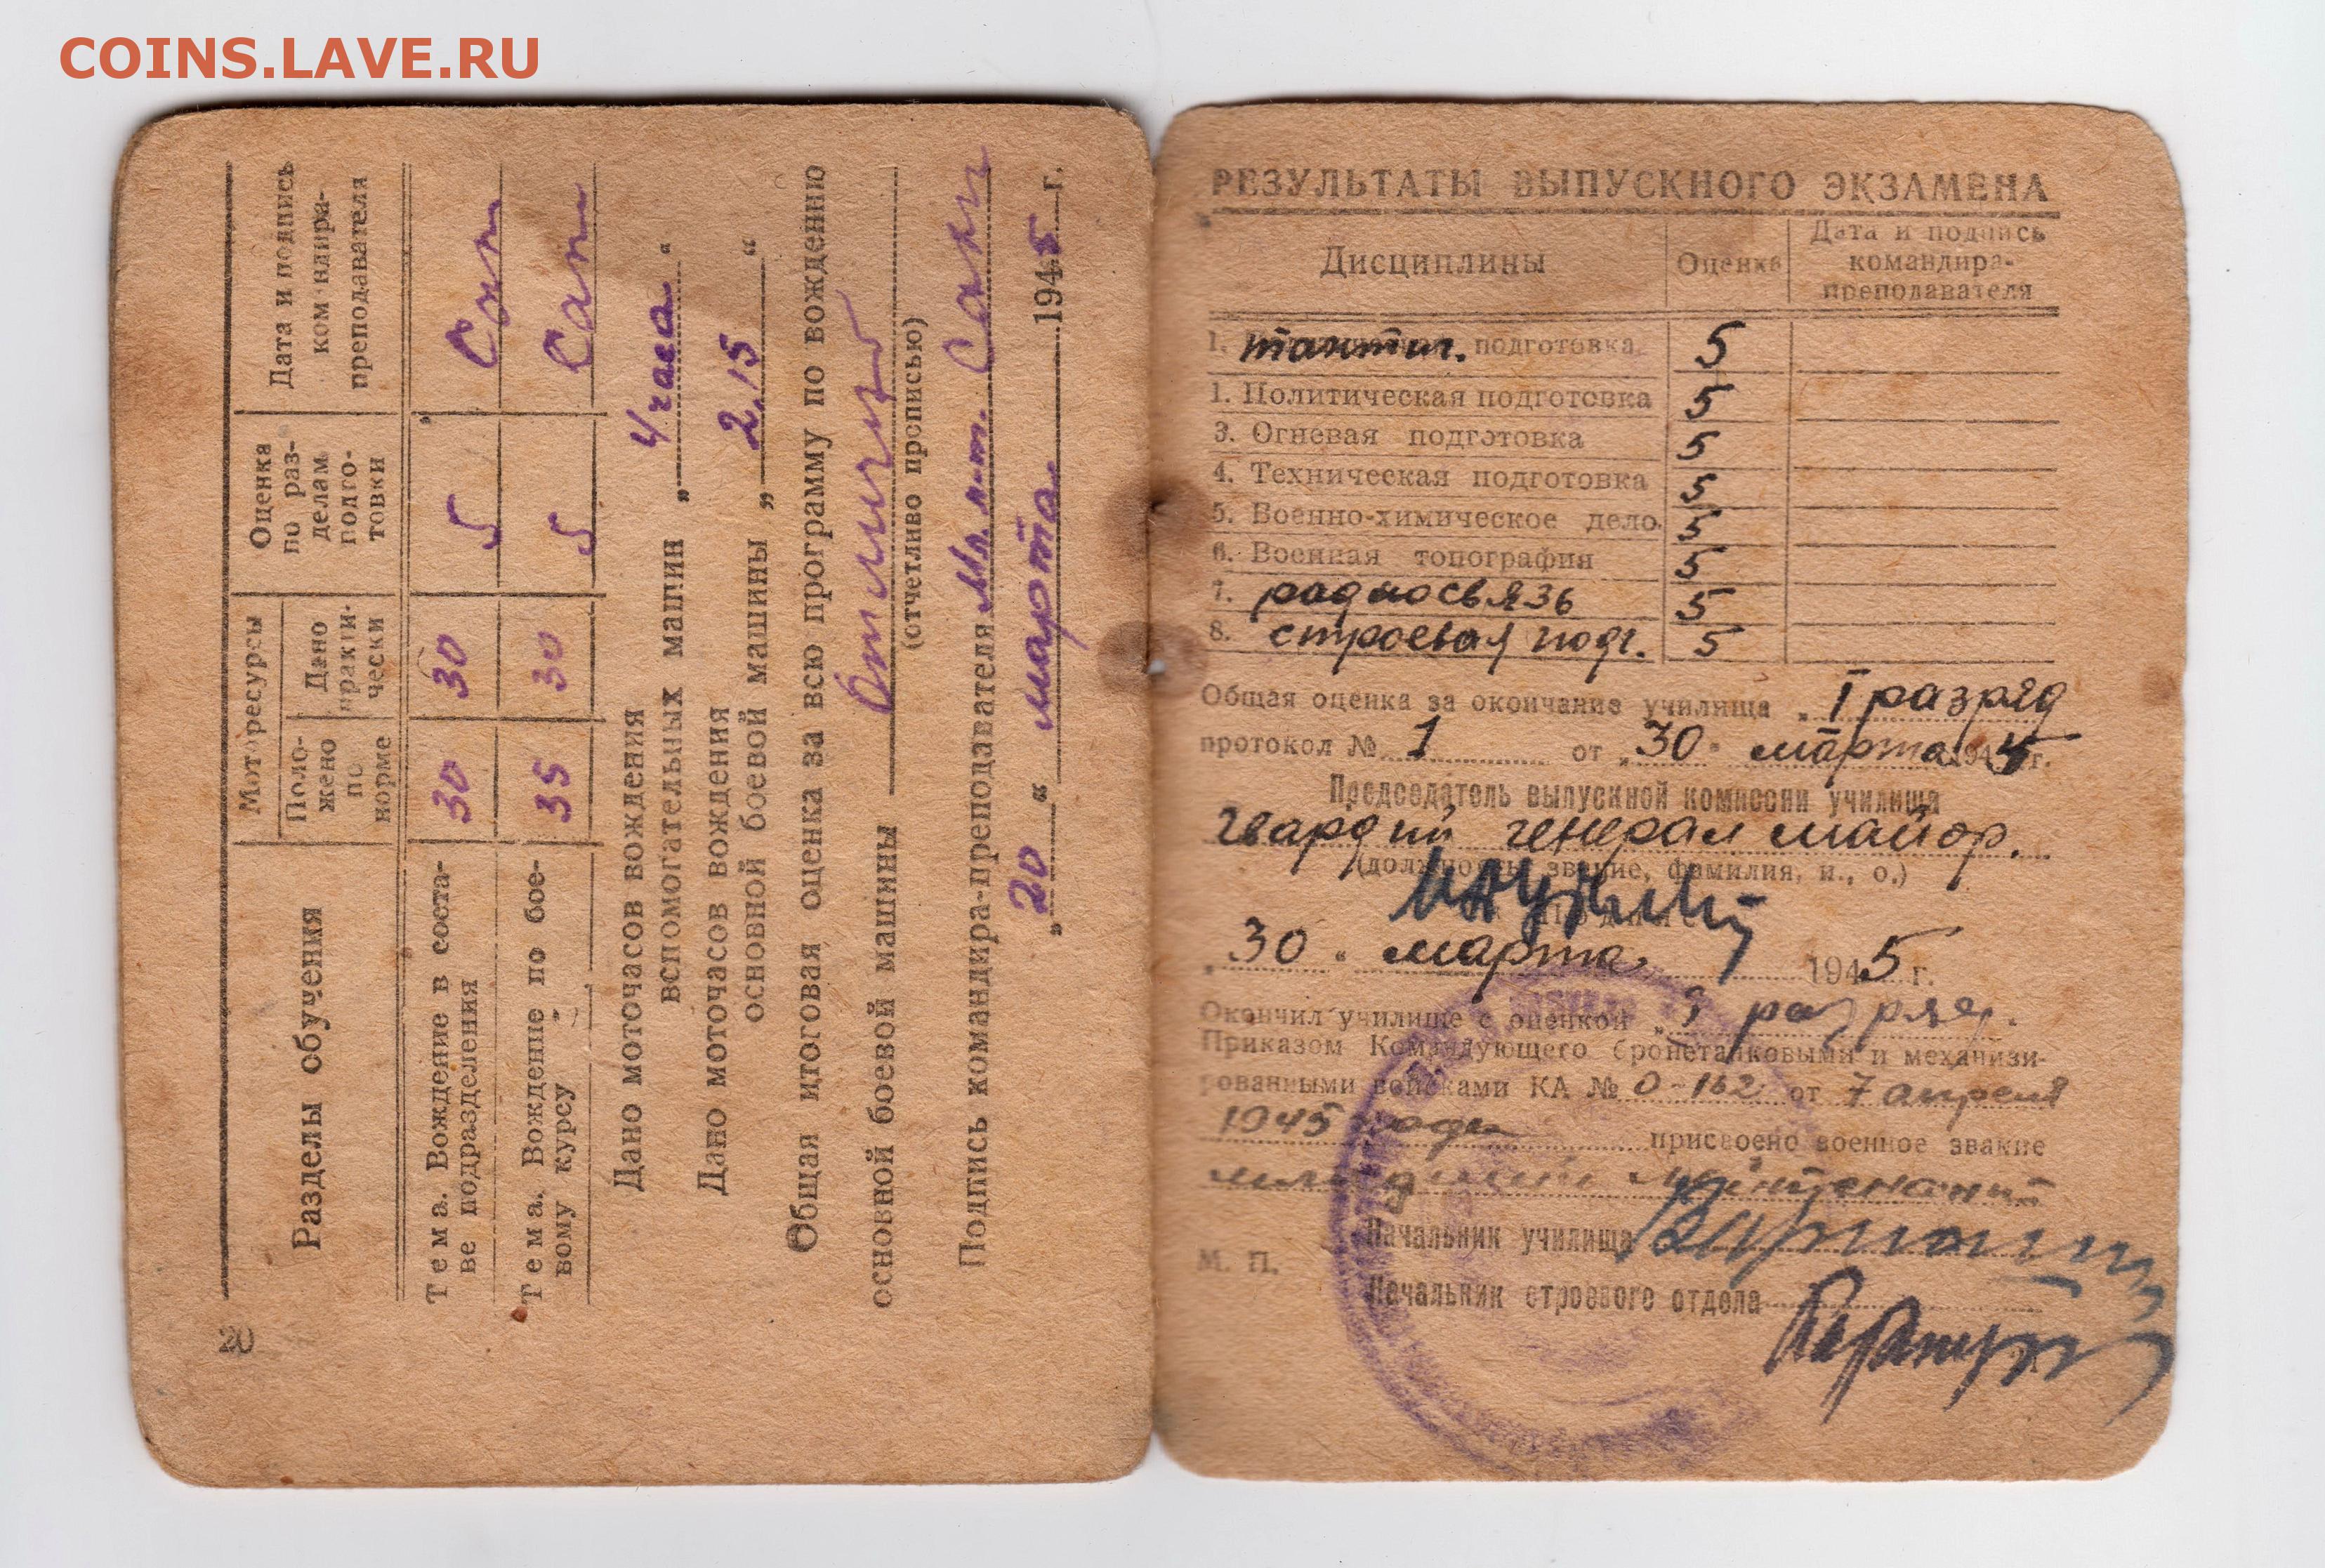 COINS.LAVE.RU
20
Разделы обучения
Моторесурсы
Поло-
жено
по
норме
Дано
практи-
чески
Оценка
по раз-
делам
подго-
товки
Дата и подпись
командира-
преподавателя
Тема. Вождение в соста-
ве подразделения
30 30 5
Тема. Вождение по бое-
вому курсу
35 30 5
Дано моточасов вождения
вспомогательных машин „ 4 часа “
Дано моточасов вождения
основной боевой машины „ 2.15 “
Общая итоговая оценка за всю программу по вождению
основной боевой машины отлично
(отчетливо прописью)
Подпись командира-преподавателя Мл. л-т.
„ 20 “ марта 1945 г.
РЕЗУЛЬТАТЫ ВЫПУСКНОГО ЭКЗАМЕНА
Дисциплины
Оценка
Дата и подпись
командира-
преподавателя
1. тактич. подготовка 5
1. Политическая подготовка 5
3. Огневая подготовка 5
4. Техническая подготовка 5
5. Военно-химическое дело 5
6. Военная топография 5
7. радиосвязь 5
8. строевая подг. 5
Общая оценка за окончание училища „ I разряд
протокол № 1 от „ 30 “ марта 1945 г.
Председатель выпускной комиссии училища
гвардии генерал майор.
(должность, звание, фамилия, и., о.)
„ 30 “ марта 1945 г.
Окончил училище с оценкой „ I разряд.
Приказом Командующего бронетанковыми и механизи-
рованными войсками КА № 0-162 от 7 апреля
1945 года присвоено военное звание
младший лейтенант
Начальник училища
М. П.
Начальник строевого отдела